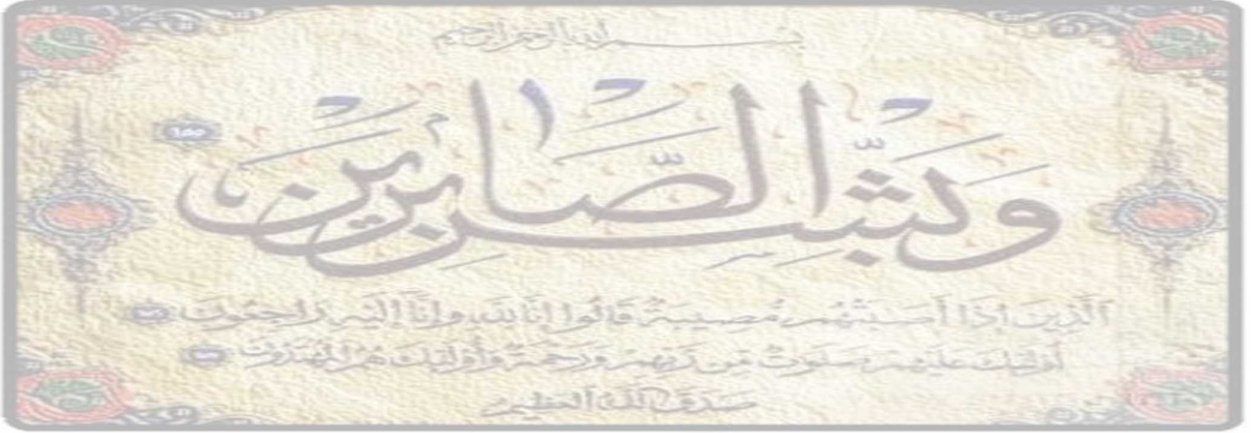 بسم الله الرحمن الرحيم
وَبَشِّرِ الصَّابِرِينَ ١٥٥
ٱلَّذِينَ إِذَا أَصَـٰبَتْهُم مُّصِيبَةٌ قَالُوا إِنَّا لِلَّهِ وَإِنَّا إِلَيْهِ رَاجِعُونَ
أُوْلَـٰئِكَ عَلَيْهِمْ صَلَوَٰتٌ مِّن رَّبِّهِمْ وَرَحْمَةٌ وَأُوْلَـٰئِكَ هُمُ ٱلْمُهْتَدُونَ
صدق الله العظيم